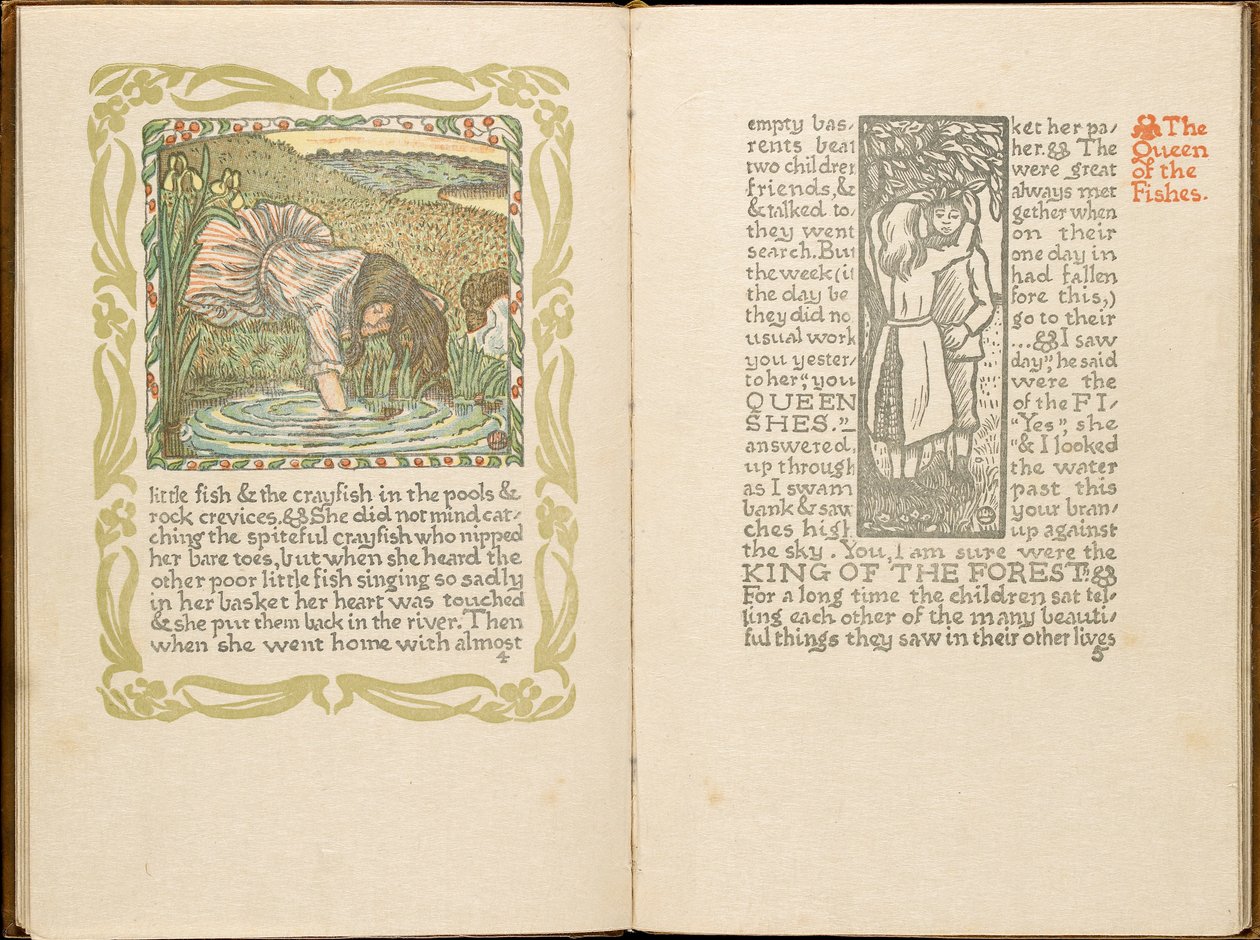 little fish & the crayfish in the pools &
rock crevices. She did not mind cat-
ching the spiteful crayfish who nipped
her bare toes, but when she heard the
other poor little fish singing so sadly
in her basket her heart was touched
& she put them back in the river. Then
when she went home with almost
4
empty bas- ket her pa-
rents beat her. The
two children were great
friends, & always met
& talked to- gether when
they went on their
search. But one day in
the week (it had fallen
the day be fore this,)
they did no go to their
usual work ... I saw
you yester- day", he said
to her", you were the
QUEEN of the FI-
SHES." "Yes", she
answered, "& I looked
up through the water
as I swam past this
bank & saw your bran-
ches high up against
the sky. You, I am sure were the
KING OF THE FOREST!"
For a long time the children sat tel-
ling each other of the many beauti-
ful things they saw in their other lives
5
The
Queen
of the
Fishes.